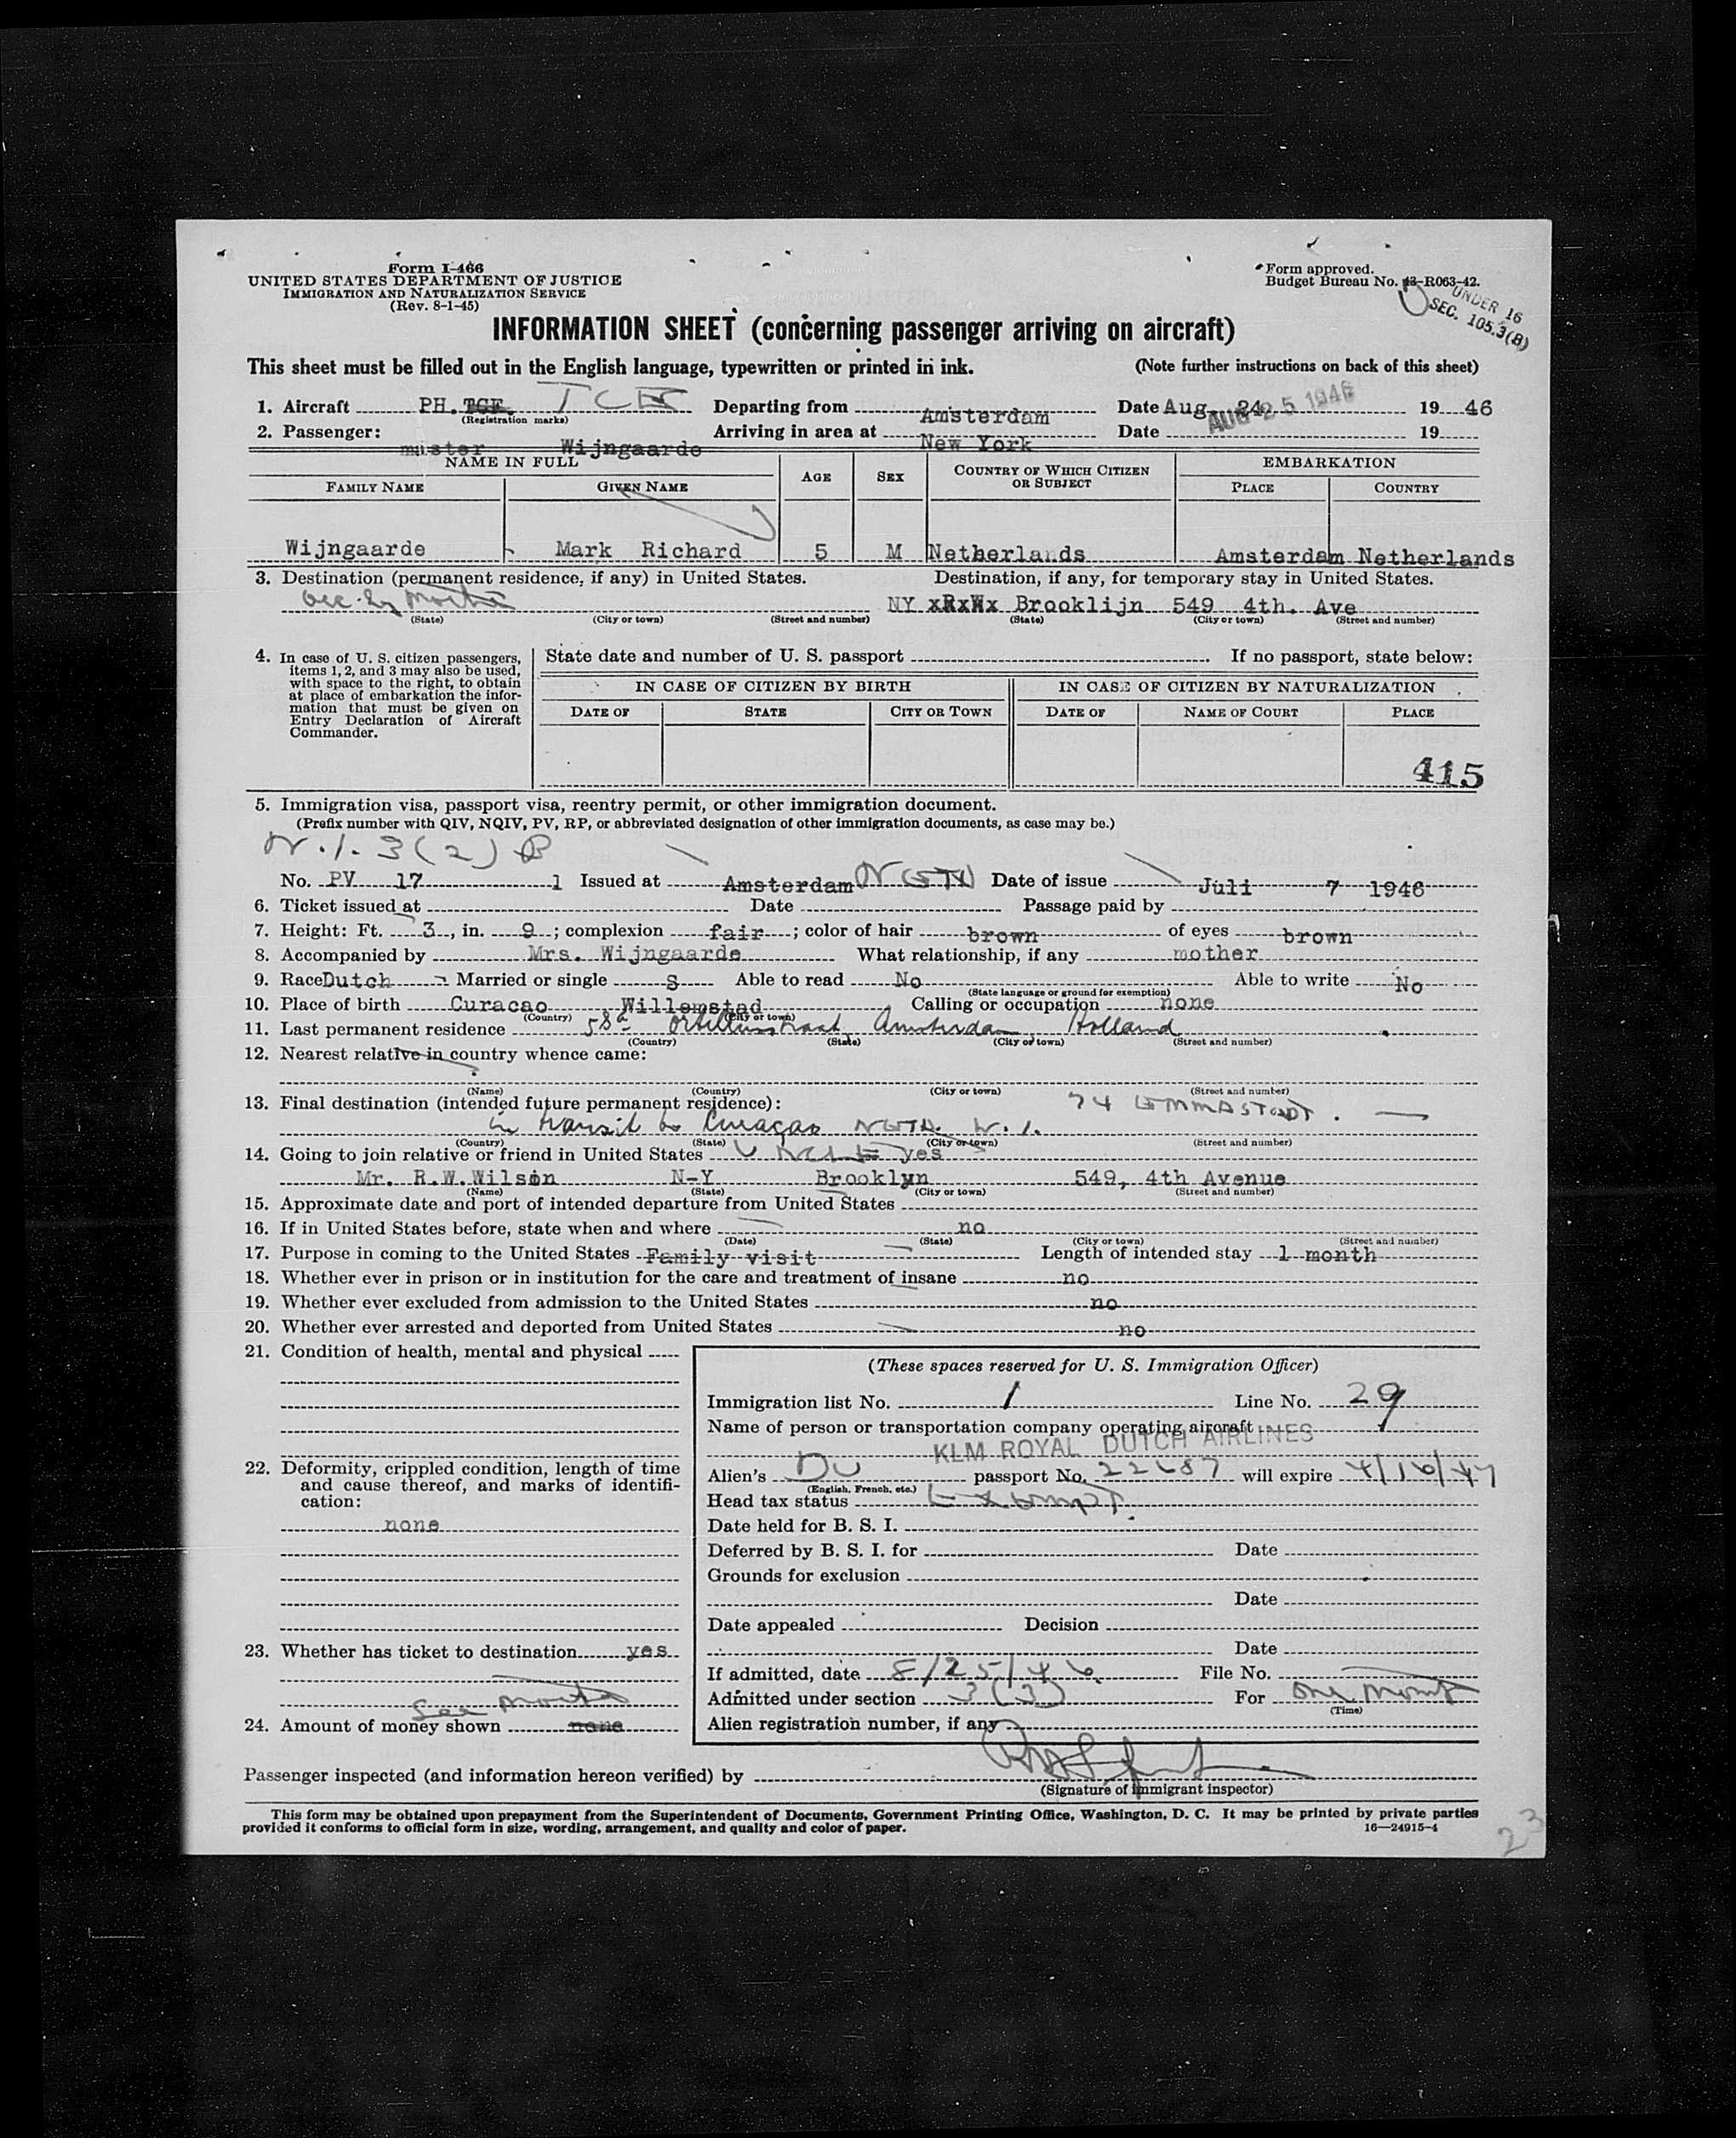 Form I-466
UNITED STATES DEPARTMENT OF JUSTICE
IMMIGRATION AND NATURALIZATION SERVICE
(Rev. 8-1-45)
Form approved.
Budget Bureau No. 43-R063-42.
UNDER 16
SEC. 105.3(B)
INFORMATION SHEET (concerning passenger arriving on aircraft)
This sheet must be filled out in the English language, typewritten or printed in ink. (Note further instructions on back of this sheet)
1. Aircraft PH. TCE Departing from Amsterdam Date Aug. 24 1946
(Registration marks)
AUG 25 1946
2. Passenger: master Wijngaarde Arriving in area at New York Date 19
NAME IN FULL AGE SEX COUNTRY OF WHICH CITIZEN OR SUBJECT EMBARKATION
FAMILY NAME GIVEN NAME PLACE COUNTRY
Wijngaarde Mark Richard 5 M Netherlands Amsterdam Netherlands
3. Destination (permanent residence, if any) in United States. Destination, if any, for temporary stay in United States.
NY Brooklijn 549 4th. Ave
(State) (City or town) (Street and number) (State) (City or town) (Street and number)
4. In case of U. S. citizen passengers,
items 1, 2, and 3 may also be used,
with space to the right, to obtain
at place of embarkation the infor-
mation that must be given on
Entry Declaration of Aircraft
Commander.
State date and number of U. S. passport If no passport, state below:
IN CASE OF CITIZEN BY BIRTH IN CASE OF CITIZEN BY NATURALIZATION
DATE OF STATE CITY OR TOWN DATE OF NAME OF COURT PLACE
415
5. Immigration visa, passport visa, reentry permit, or other immigration document.
(Prefix number with QIV, NQIV, PV, RP, or abbreviated designation of other immigration documents, as case may be.)
3(2) B
No. PV 17 1 Issued at Amsterdam Date of issue Juli 7 1946
6. Ticket issued at Date Passage paid by
7. Height: Ft. 3, in. 9; complexion fair; color of hair brown of eyes brown
8. Accompanied by Mrs. Wijngaarde What relationship, if any mother
9. Race Dutch Married or single S Able to read No Able to write No
(State language or ground for exemption)
10. Place of birth Curacao Willemstad Calling or occupation none
(Country) (City or town)
11. Last permanent residence 58a Amsterdam Holland
(Country) (State) (City or town) (Street and number)
12. Nearest relative in country whence came:
(Name) (Country) (City or town) (Street and number)
13. Final destination (intended future permanent residence):
in transit to Curaçao NETH. W. I.
(Country) (State) (City or town) (Street and number)
14. Going to join relative or friend in United States UNCLE yes
Mr. R.W.Wilson N-Y Brooklyn 549, 4th Avenue
(Name) (State) (City or town) (Street and number)
15. Approximate date and port of intended departure from United States
16. If in United States before, state when and where no
(Date) (State) (City or town) (Street and number)
17. Purpose in coming to the United States Family visit Length of intended stay 1 month
18. Whether ever in prison or in institution for the care and treatment of insane no
19. Whether ever excluded from admission to the United States no
20. Whether ever arrested and deported from United States no
21. Condition of health, mental and physical
22. Deformity, crippled condition, length of time
and cause thereof, and marks of identifi-
cation:
none
23. Whether has ticket to destination yes
See Mother
24. Amount of money shown none
(These spaces reserved for U. S. Immigration Officer)
Immigration list No. 1 Line No. 29
Name of person or transportation company operating aircraft
KLM ROYAL DUTCH AIRLINES
Alien's Du passport No. 22687 will expire 4/16/47
(English, French, etc.)
Head tax status Exempt
Date held for B. S. I.
Deferred by B. S. I. for Date
Grounds for exclusion
Date
Date appealed Decision
Date
If admitted, date 8/25/46 File No.
Admitted under section 3(3) For One Month
(Time)
Alien registration number, if any
Passenger inspected (and information hereon verified) by
(Signature of immigrant inspector)
This form may be obtained upon prepayment from the Superintendent of Documents, Government Printing Office, Washington, D. C. It may be printed by private parties
provided it conforms to official form in size, wording, arrangement, and quality and color of paper. 16—24915-4
23